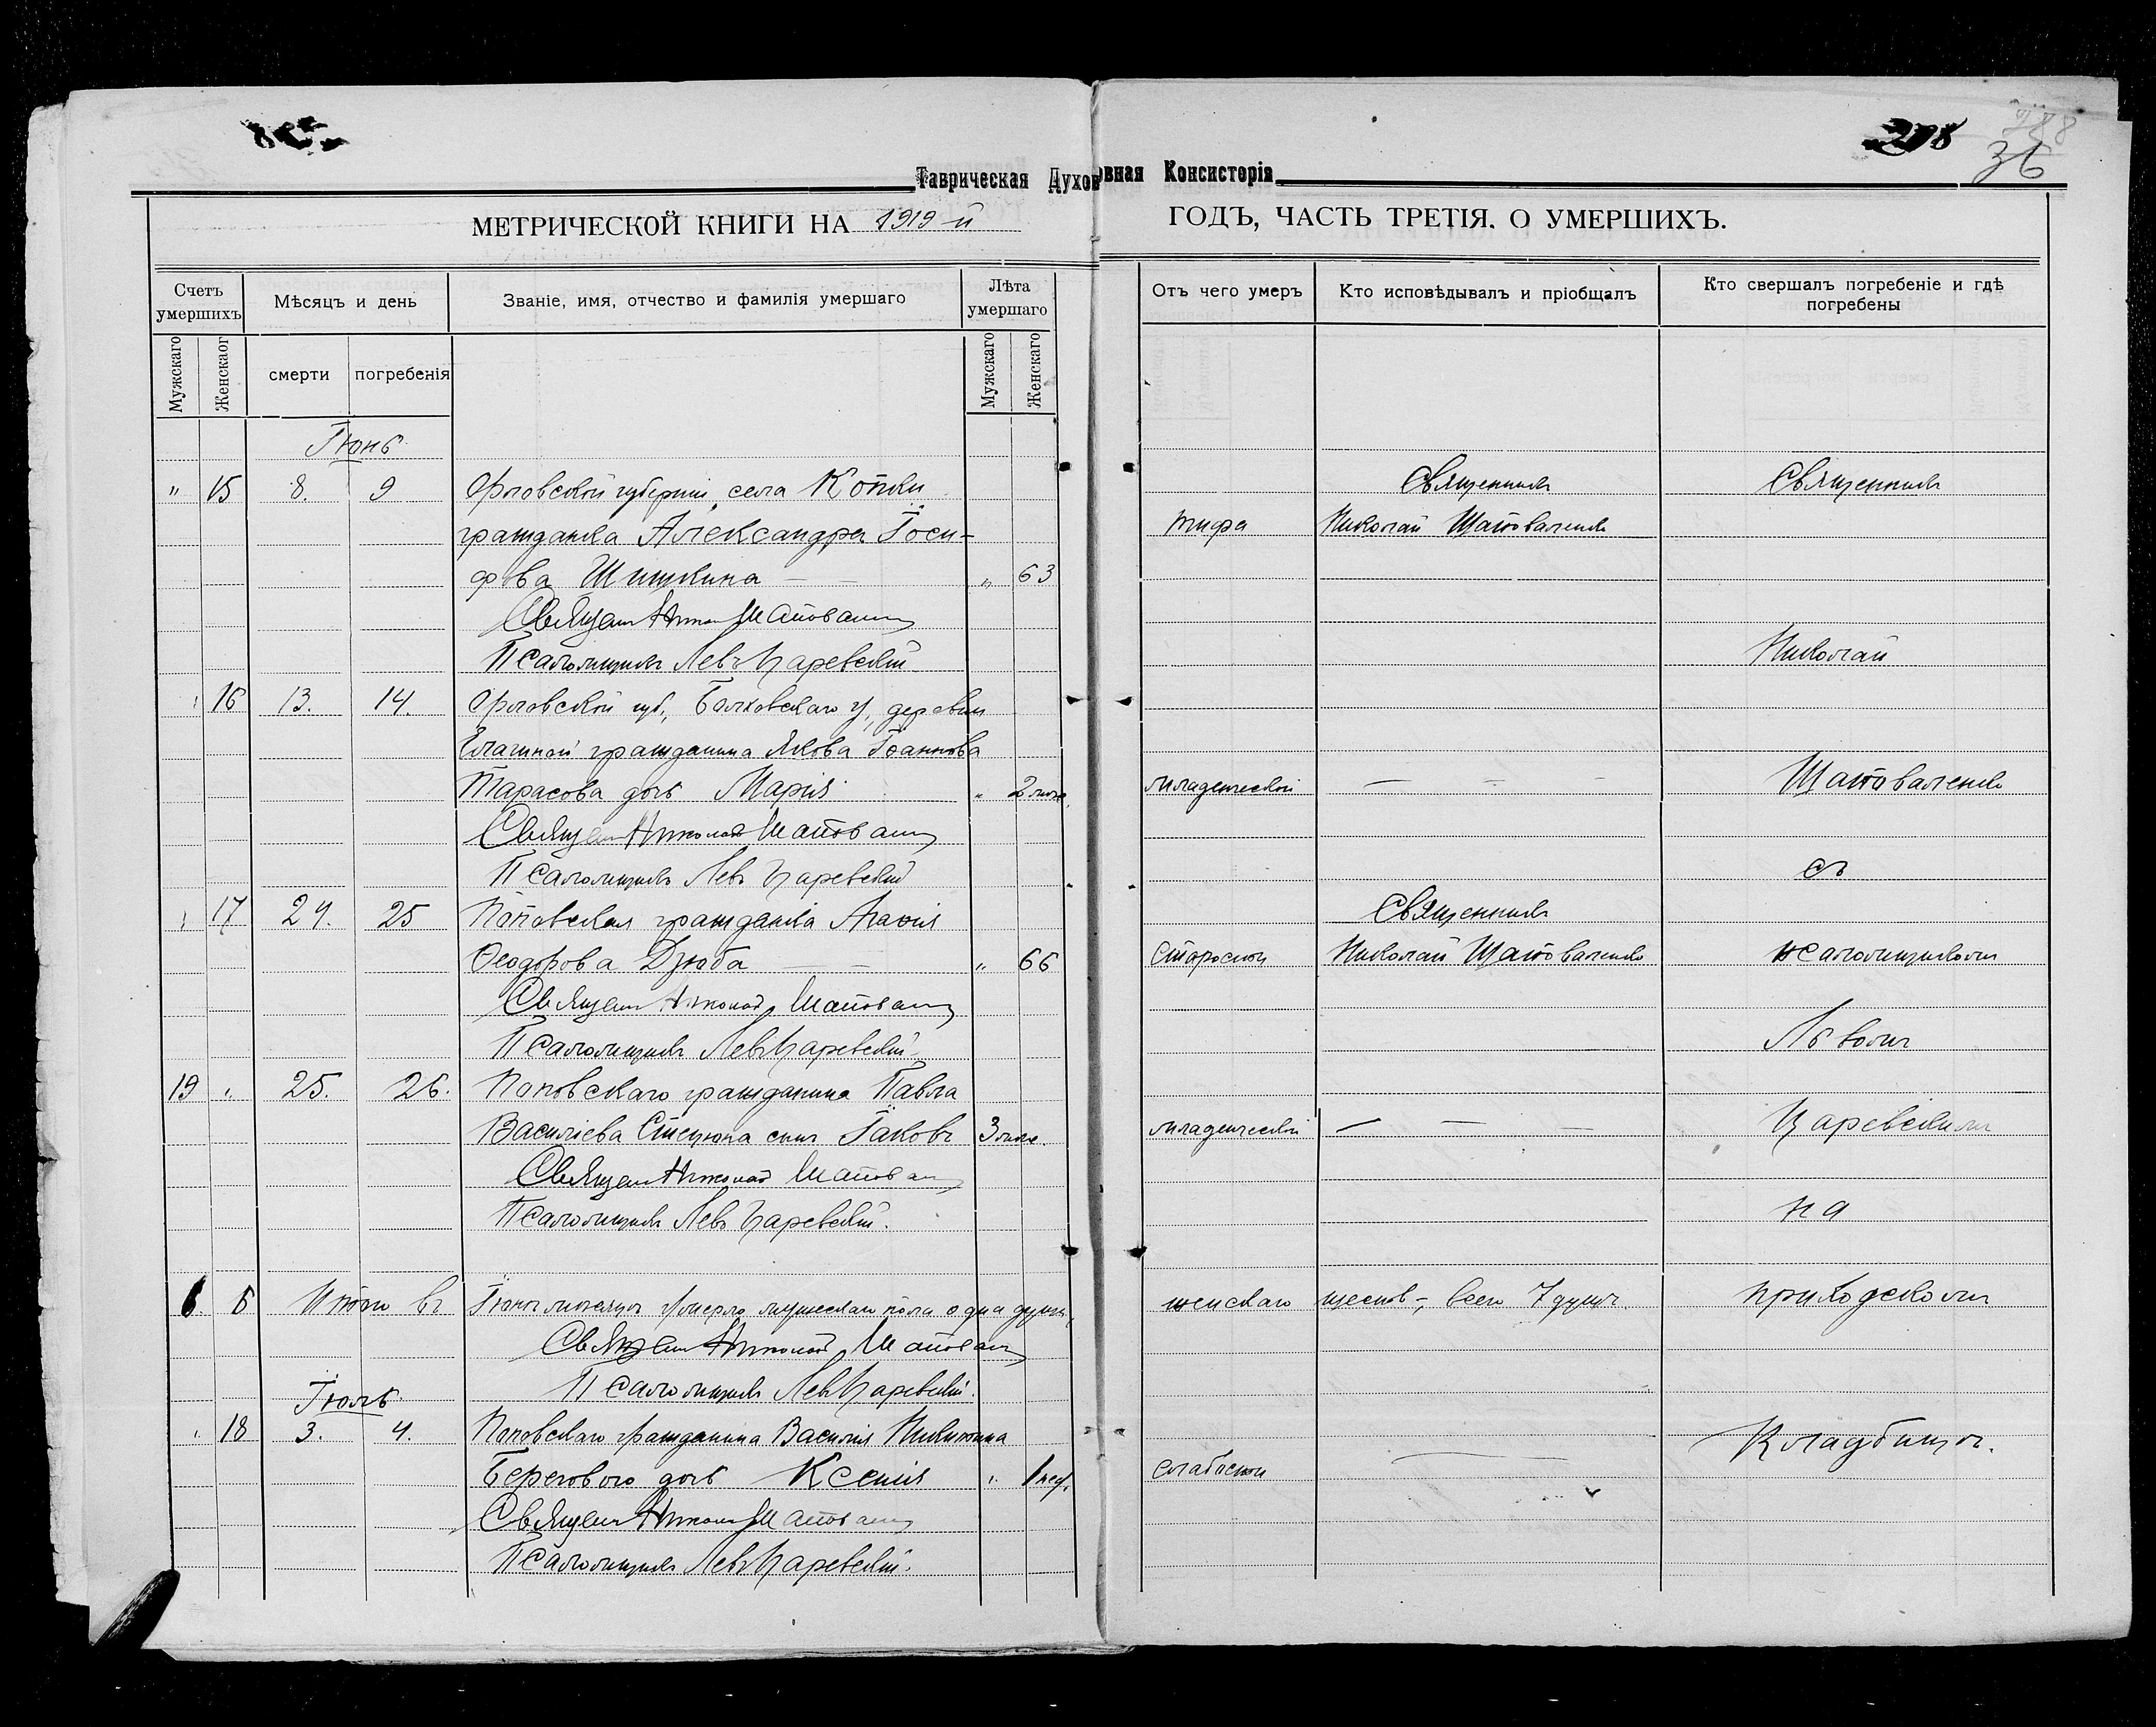 298
36
Таврическая Духовная Консисторія
МЕТРИЧЕСКОЙ КНИГИ НА 1919-й ГОДЪ, ЧАСТЬ ТРЕТІЯ. О УМЕРШИХЪ.
Счетъ умершихъ
Мѣсяцъ и день
Званіе, имя, отчество и фамилія умершаго
Лѣта умершаго
Отъ чего умеръ
Кто исповѣдывалъ и пріобщалъ
Кто свершалъ погребеніе и гдѣ погребены
Мужскаго
Женскаог
смерти
погребенія
Мужскаго
Женскаго
Іюнь
" 15 8. 9 Орловской губерніи, села Священникъ Священникъ
гражданка Александра Іоси- тифа Николай Шаповаленко
фова Шишкина " 63
Священ Никол Шаповален
Псаломщикъ Левъ Царевскій Николай
" 16 13. 14. Орловской губ., Болховскаго у, деревни
гражданина Якова Іоаннова
Тарасова дочь Марія " 2 мѣс. младенческой — — — Шаповаленко
Священ Николай Шаповален
Псаломщикъ Левъ Царевскій съ
" 17 24. 25 Поповская гражданка Агаѳія Священникъ
Ѳеодорова Дзюба " 66 Старости Николай Шаповаленко псаломщикомъ
Священ Николай Шаповален
Псаломщикъ Левъ Царевскій Львомъ
19 " 25. 26. Поповскаго гражданина Павла
Василіева Стецюка сынъ Іаковъ 3 мѣс. младенческой — — — Царевскимъ
Священ Николай Шаповален
Псаломщикъ Левъ Царевскій. на
6 Итого въ Іюнѣ мѣсяцѣ умерло мужескаго пола одна душа, женскаго шесть, всего 7 душъ. приходскомъ
Священ Николай Шаповален
Псаломщикъ Левъ Царевскій.
Іюль
" 18 3. 4. Поповскаго гражданина Василія Никитина Кладбищѣ.
Берегового дочь Ксенія " 1 нед. слабости —
Священ Никол Шаповален
Псаломщикъ Левъ Царевскій.